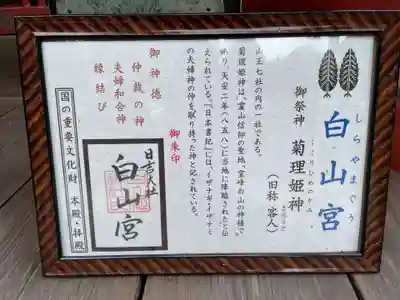 しらやまぐう
白山宮
御祭神 菊理姫神
くくりひめのかみ
(旧称 客人)
まろうど
山王七社の内の一社である。
菊理姫神は、霊山信仰の聖地「霊峰白山の神様で
あり、天安二年(八五八)に当地に降臨されたと伝
えられている。『日本書紀』には、イザナギ・イザナミ
の夫婦神の仲を取り持った神と記されている。
御朱印
日吉大社
白山宮
御神徳
仲裁の神
夫婦和合神
縁結び
国の重要文化財 本殿・拝殿